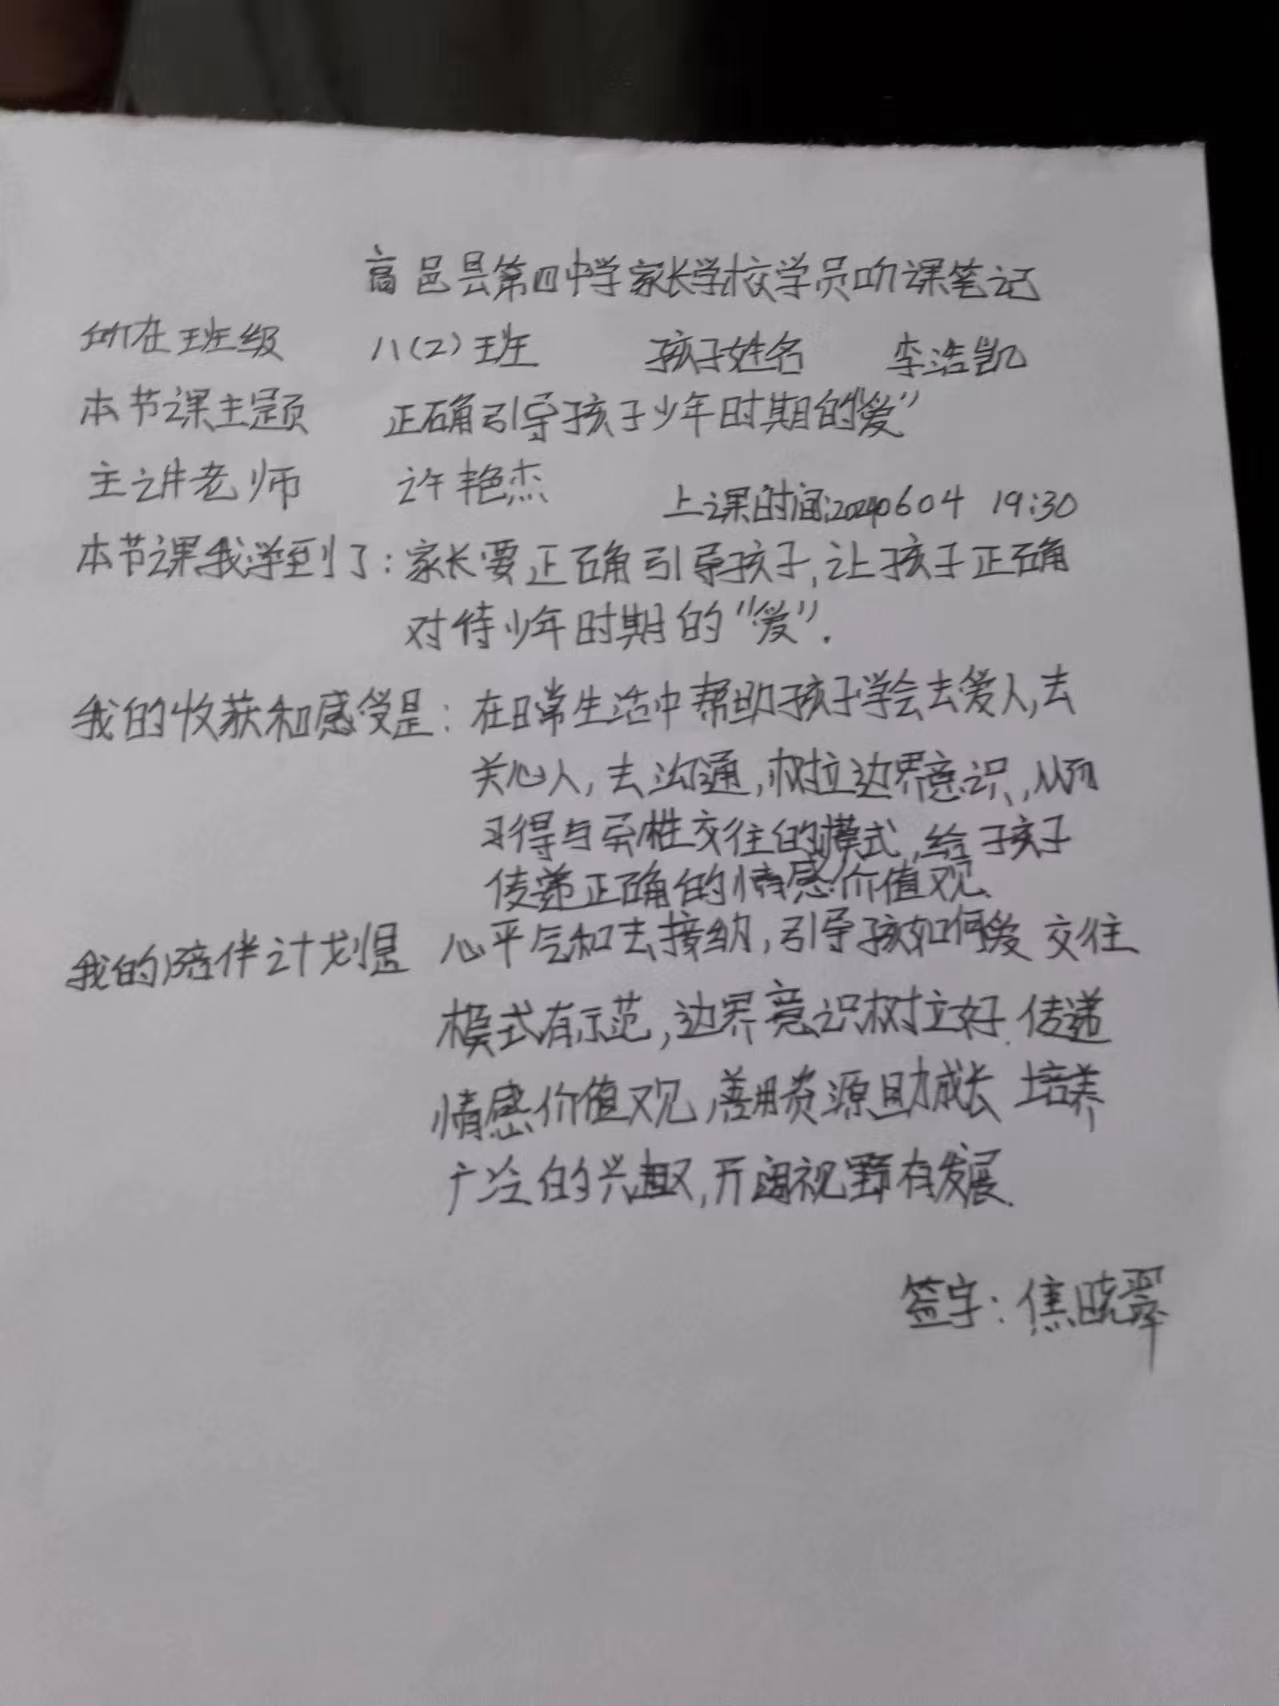 高邑县第四中学家长学校学员听课笔记
所在班级 八(2)班 孩子姓名 李浩凯
本节课主题 正确引导孩子少年时期的“爱”
主讲老师 许艳杰 上课时间:20240604 19:30
本节课我学到了:家长要正确引导孩子,让孩子正确
对待少年时期的“爱”.
我的收获和感受是:在日常生活中帮助孩子学会去爱人,去
关心人,去沟通,树立边界意识,从而
习得与异性交往的模式,给予孩子
传递正确的情感价值观
我的陪伴计划是 心平气和去接纳,引导孩如何爱 交往
模式有示范,边界意识树立好.传递
情感价值观,善用资源助成长 培养
广泛的兴趣,开阔视野有发展.
签字:焦晓翠